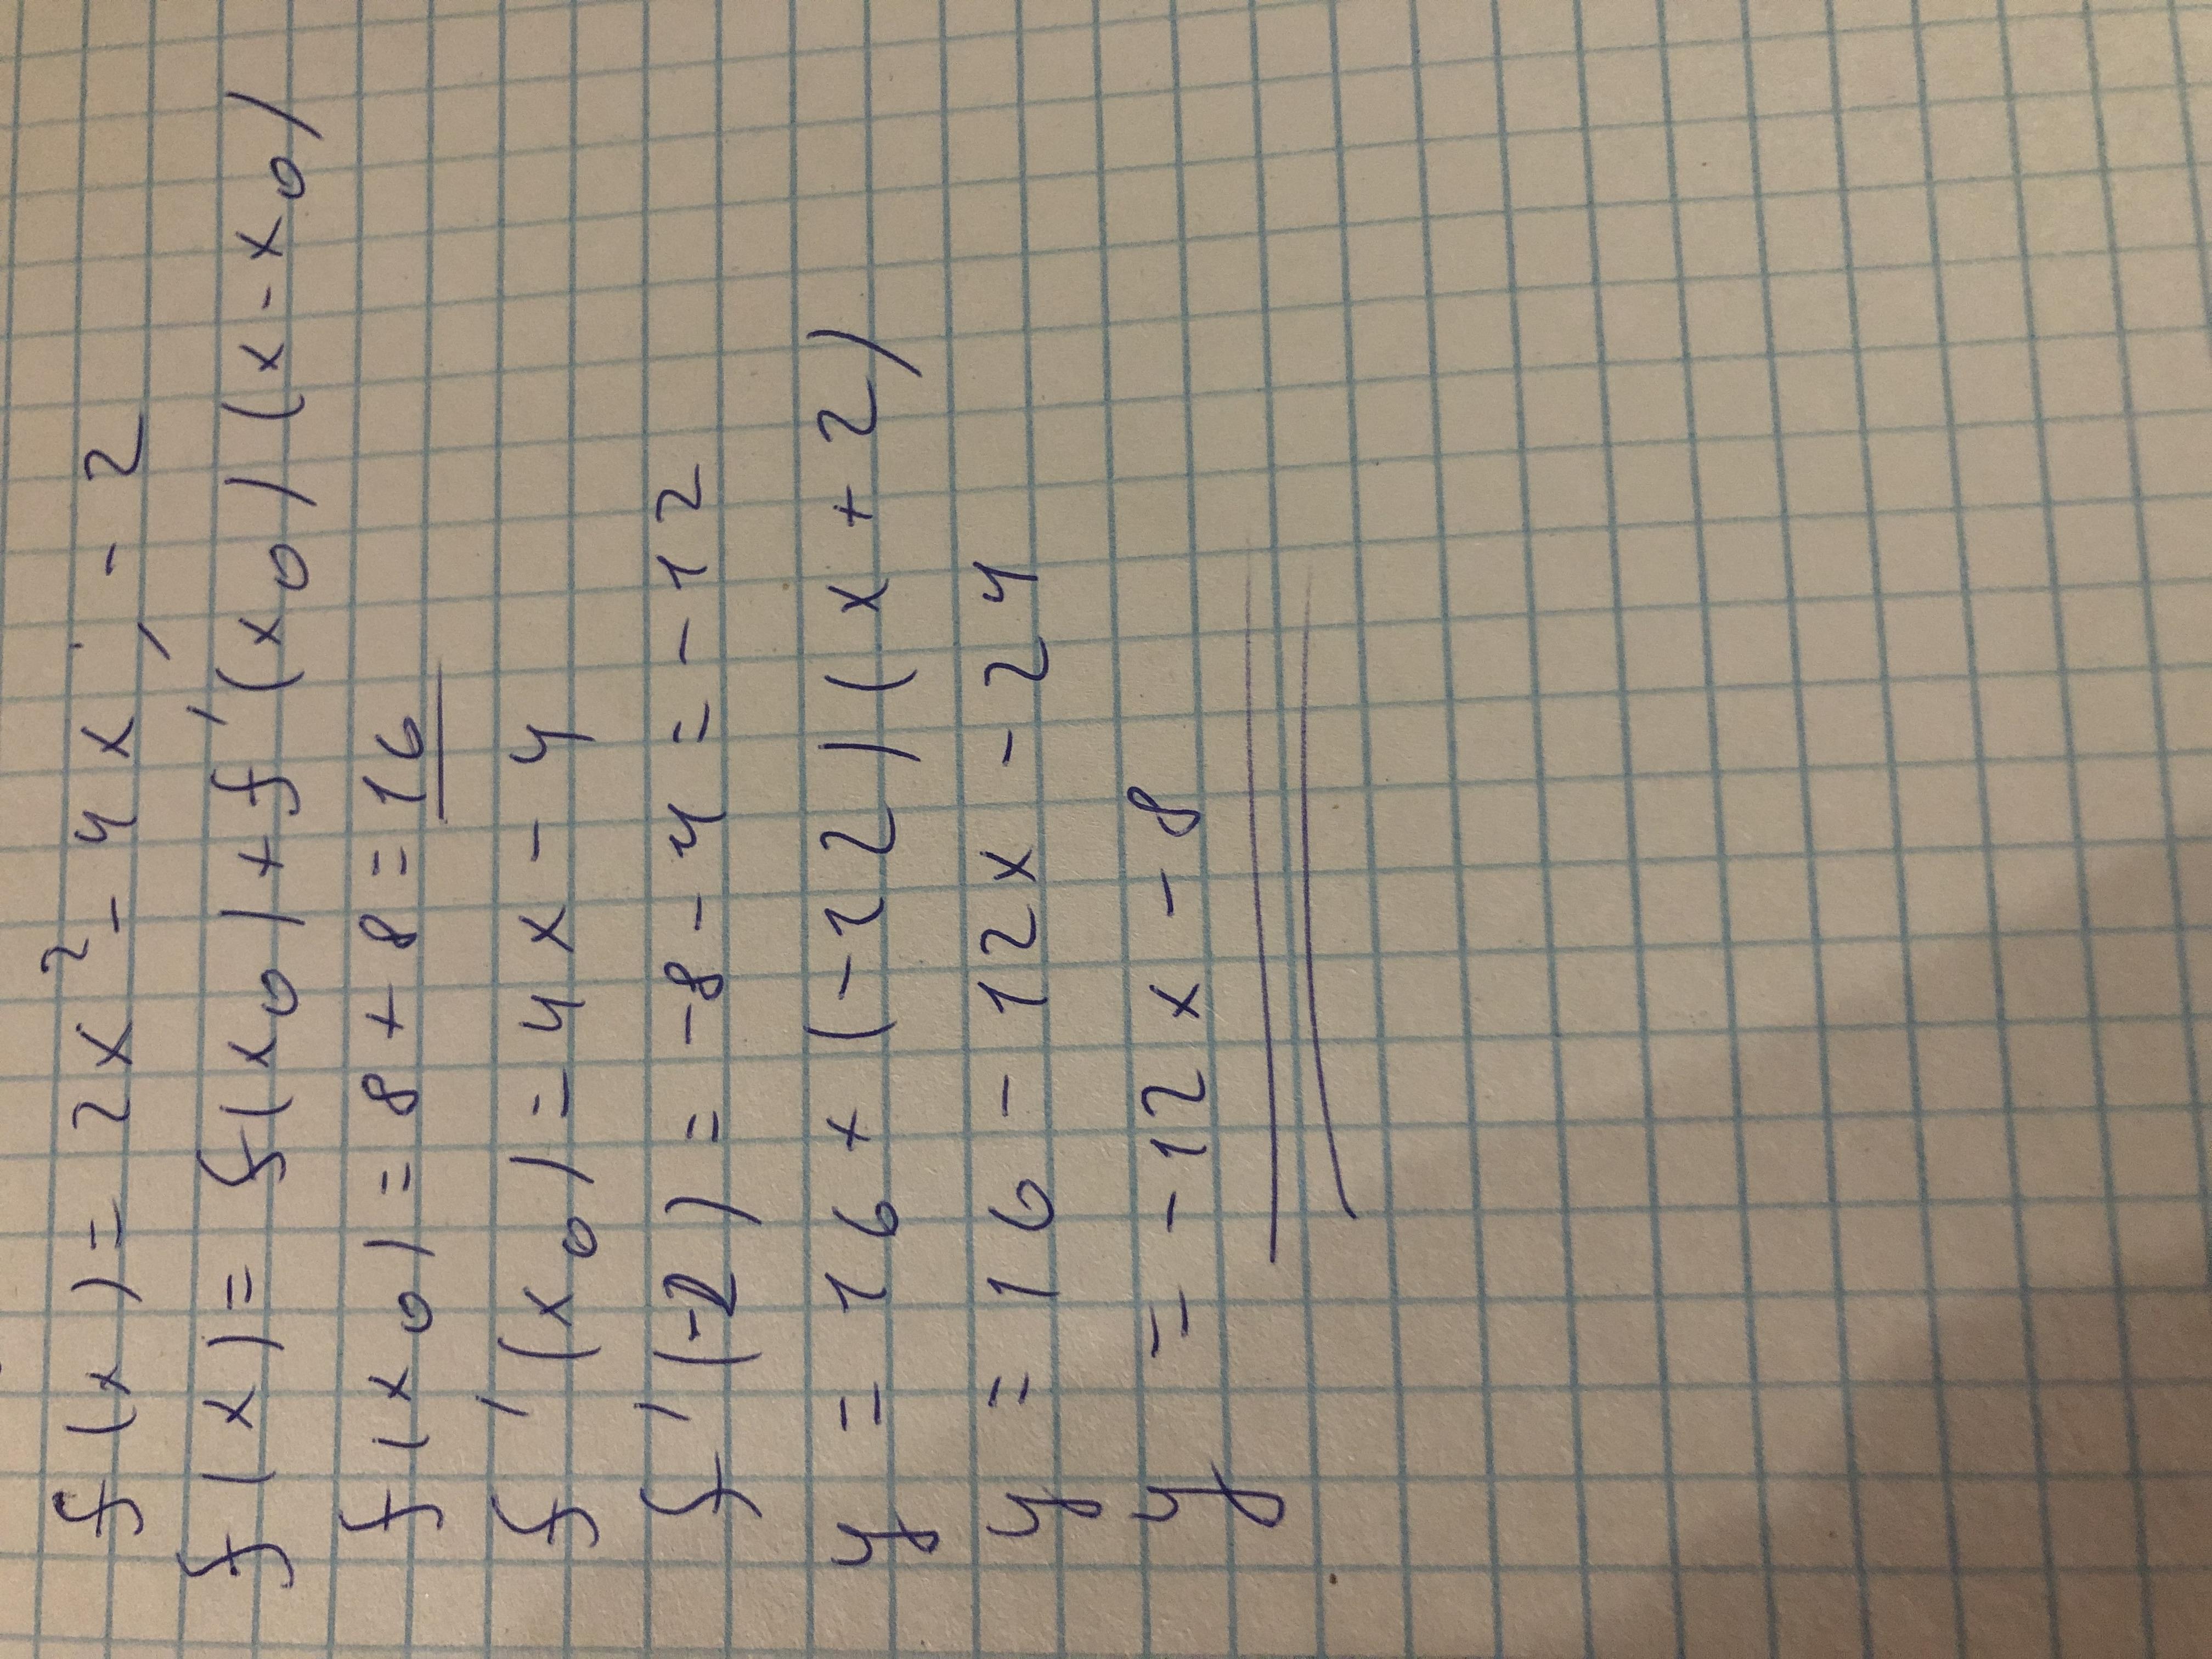 f(x) = 2x² - 4x ; - 2
f(x) = f(x₀) + f'(x₀)(x - x₀)
f(x₀) = 8 + 8 = 16
f'(x₀) = 4x - 4
f'(-2) = -8 - 4 = -12
y = 16 + (-12)(x + 2)
y = 16 - 12x - 24
y = -12x - 8